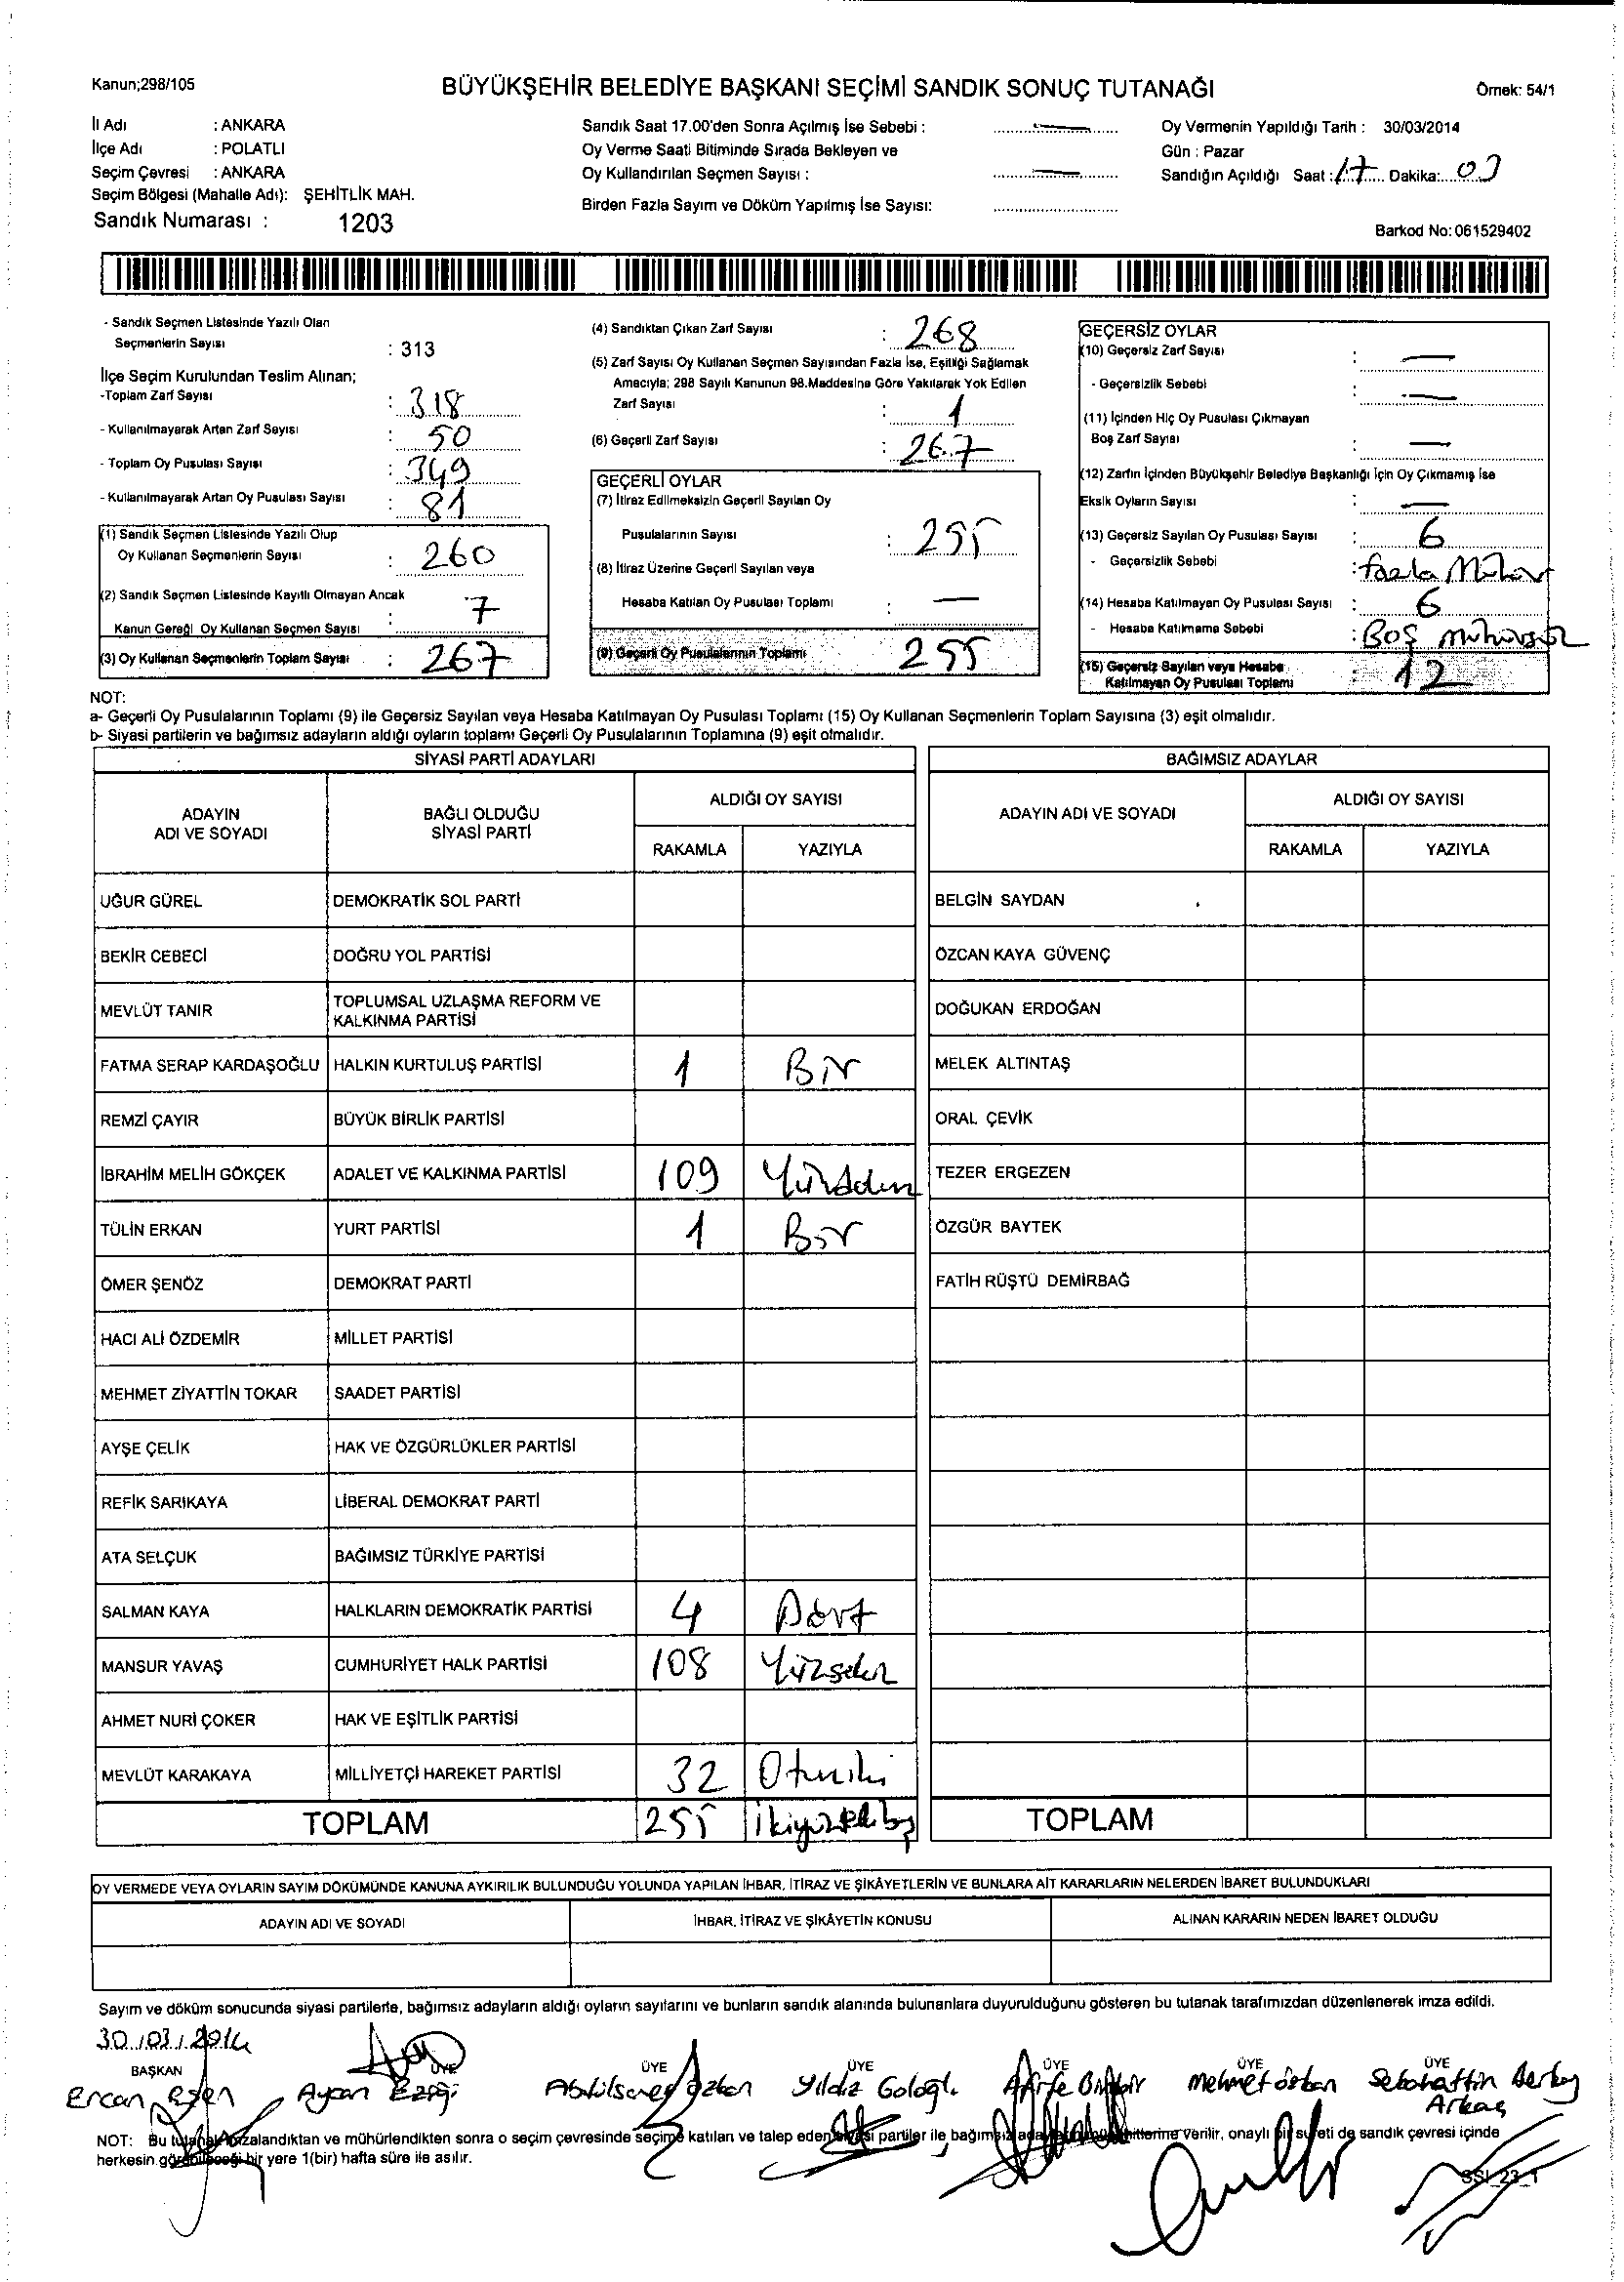 Kanun;298/105
BÜYÜKŞEHİR BELEDİYE BAŞKANI SEÇİMİ SANDIK SONUÇ TUTANAĞI
Örnek: 54/1
İl Adı : ANKARA
İlçe Adı : POLATLI
Seçim Çevresi : ANKARA
Seçim Bölgesi (Mahalle Adı): ŞEHİTLİK MAH.
Sandık Numarası : 1203
Sandık Saat 17.00'den Sonra Açılmış İse Sebebi : —
Oy Verme Saati Bitiminde Sırada Bekleyen ve
Oy Kullandırılan Seçmen Sayısı : —
Birden Fazla Sayım ve Döküm Yapılmış İse Sayısı:
Oy Vermenin Yapıldığı Tarih : 30/03/2014
Gün : Pazar
Sandığın Açıldığı Saat : 17 Dakika: 03
Barkod No: 061529402
- Sandık Seçmen Listesinde Yazılı Olan
Seçmenlerin Sayısı : 313
İlçe Seçim Kurulundan Teslim Alınan;
-Toplam Zarf Sayısı : 318
- Kullanılmayarak Artan Zarf Sayısı : 50
- Toplam Oy Pusulası Sayısı : 349
- Kullanılmayarak Artan Oy Pusulası Sayısı : 81
(1) Sandık Seçmen Listesinde Yazılı Olup
Oy Kullanan Seçmenlerin Sayısı : 260
(2) Sandık Seçmen Listesinde Kayıtlı Olmayan Ancak
Kanun Gereği Oy Kullanan Seçmen Sayısı : 7
(3) Oy Kullanan Seçmenlerin Toplam Sayısı : 267
(4) Sandıktan Çıkan Zarf Sayısı : 268
(5) Zarf Sayısı Oy Kullanan Seçmen Sayısından Fazla İse, Eşitliği Sağlamak
Amacıyla; 298 Sayılı Kanunun 98.Maddesine Göre Yakılarak Yok Edilen
Zarf Sayısı : 1
(6) Geçerli Zarf Sayısı : 267
GEÇERLİ OYLAR
(7) İtiraz Edilmeksizin Geçerli Sayılan Oy
Pusulalarının Sayısı : 255
(8) İtiraz Üzerine Geçerli Sayılan veya
Hesaba Katılan Oy Pusulası Toplamı : —
(9) Geçerli Oy Pusulalarının Toplamı 255
GEÇERSİZ OYLAR
(10) Geçersiz Zarf Sayısı : —
- Geçersizlik Sebebi : —
(11) İçinden Hiç Oy Pusulası Çıkmayan
Boş Zarf Sayısı : —
(12) Zarfın İçinden Büyükşehir Belediye Başkanlığı İçin Oy Çıkmamış İse
Eksik Oyların Sayısı : —
(13) Geçersiz Sayılan Oy Pusulası Sayısı : 6
- Geçersizlik Sebebi : fazla Mühür
(14) Hesaba Katılmayan Oy Pusulası Sayısı : 6
- Hesaba Katılmama Sebebi : Boş mühürsüz
(15) Geçersiz Sayılan veya Hesaba
Katılmayan Oy Pusulası Toplamı : 12
NOT:
a- Geçerli Oy Pusulalarının Toplamı (9) ile Geçersiz Sayılan veya Hesaba Katılmayan Oy Pusulası Toplamı (15) Oy Kullanan Seçmenlerin Toplam Sayısına (3) eşit olmalıdır.
b- Siyasi partilerin ve bağımsız adayların aldığı oyların toplamı Geçerli Oy Pusulalarının Toplamına (9) eşit olmalıdır.
SİYASİ PARTİ ADAYLARI
ADAYIN ADI VE SOYADI
BAĞLI OLDUĞU SİYASİ PARTİ
ALDIĞI OY SAYISI
RAKAMLA YAZIYLA
UĞUR GÜREL DEMOKRATİK SOL PARTİ
BEKİR CEBECİ DOĞRU YOL PARTİSİ
MEVLÜT TANIR TOPLUMSAL UZLAŞMA REFORM VE KALKINMA PARTİSİ
FATMA SERAP KARDAŞOĞLU HALKIN KURTULUŞ PARTİSİ 1 Bir
REMZİ ÇAYIR BÜYÜK BİRLİK PARTİSİ
İBRAHİM MELİH GÖKÇEK ADALET VE KALKINMA PARTİSİ 109
TÜLİN ERKAN YURT PARTİSİ 1 Bir
ÖMER ŞENÖZ DEMOKRAT PARTİ
HACI ALİ ÖZDEMİR MİLLET PARTİSİ
MEHMET ZİYATTİN TOKAR SAADET PARTİSİ
AYŞE ÇELİK HAK VE ÖZGÜRLÜKLER PARTİSİ
REFİK SARIKAYA LİBERAL DEMOKRAT PARTİ
ATA SELÇUK BAĞIMSIZ TÜRKİYE PARTİSİ
SALMAN KAYA HALKLARIN DEMOKRATİK PARTİSİ 4 Dört
MANSUR YAVAŞ CUMHURİYET HALK PARTİSİ 108 Yüzsekiz
AHMET NURİ ÇOKER HAK VE EŞİTLİK PARTİSİ
MEVLÜT KARAKAYA MİLLİYETÇİ HAREKET PARTİSİ 32 Otuziki
TOPLAM 255 İkiyüzellibeş
BAĞIMSIZ ADAYLAR
ADAYIN ADI VE SOYADI
ALDIĞI OY SAYISI
RAKAMLA YAZIYLA
BELGİN SAYDAN
ÖZCAN KAYA GÜVENÇ
DOĞUKAN ERDOĞAN
MELEK ALTINTAŞ
ORAL ÇEVİK
TEZER ERGEZEN
ÖZGÜR BAYTEK
FATİH RÜŞTÜ DEMİRBAĞ
TOPLAM
OY VERMEDE VEYA OYLARIN SAYIM DÖKÜMÜNDE KANUNA AYKIRILIK BULUNDUĞU YOLUNDA YAPILAN İHBAR, İTİRAZ VE ŞİKÂYETLERİN VE BUNLARA AİT KARARLARIN NELERDEN İBARET BULUNDUKLARI
ADAYIN ADI VE SOYADI
İHBAR, İTİRAZ VE ŞİKÂYETİN KONUSU
ALINAN KARARIN NEDEN İBARET OLDUĞU
Sayım ve döküm sonucunda siyasi partilerle, bağımsız adayların aldığı oyların sayılarını ve bunların sandık alanında bulunanlara duyurulduğunu gösteren bu tutanak tarafımızdan düzenlenerek imza edildi.
30.03.2014
BAŞKAN ÜYE ÜYE ÜYE ÜYE ÜYE ÜYE
Ercan Esen Aycan Ezgi Özkan Yıldız Mehmet Özkan Sebahattin Berkay
Arkaş
NOT: Bu tutanak imzalandıktan ve mühürlendikten sonra o seçim çevresinde seçime katılan ve talep eden siyasi partiler ile bağımsız verilir, onaylı bir sureti de sandık çevresi içinde
herkesin görebileceği bir yere 1(bir) hafta süre ile asılır.
SSI_23_1